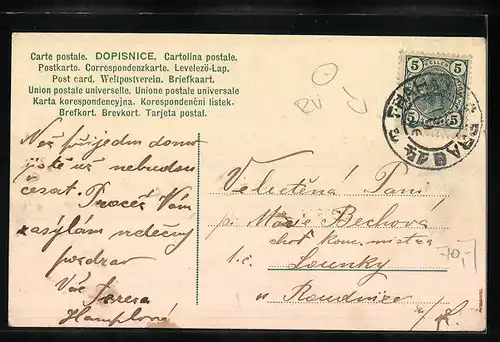 Carte postale. DOPISNICE. Cartolina postale.
Postkarto. Correspondenzkarte. Levelező-Lap.
Post card. Weltpostverein. Briefkaart.
Union postale universelle. Unione postale universale
Karta korespondencyjna. Korespondenční listek.
Brefkort. Brevkort. Tarjeta postal.
5 5
HELLER
5 5
Než přijedem domů
jistě už nebudou
česat. Pročež Vám
zasýlám vděčný
pozdrav
Vác
Hamplová
Veletěná Paní
pí. Marie Bechová
choť
70,-
t.č. Lounky
u Roudnice